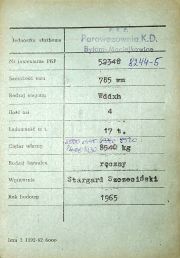 P K P
Jednostka służbowa Parowozownia K.D.
Bytom-Maciejkowice
Nr inwentarza PKP 52348 8244-5
Szerokość toru 785 mm
Rodzaj wagonu Wddxh
Ilość osi 4
Ładowność w t. 17 t.
Ciężar własny 8540 kg
Rodzaj hamulca ręczny
Wytwórnia Stargard Szczeciński
Rok budowy 1965